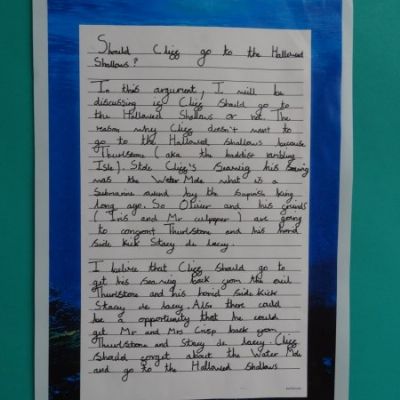 Should Cligg go to the Hallowed
Shallows?
In this argument, I will be
discussing is Cligg should go to
the Hallowed Shallows or not. The
reason why Cligg doesn't want to
go to the Hallowed Shallows because
Thurlstone (aka the baddist rambling
Isle). Stole Cligg's Seawig his Seawig
was the Water Mole what is a
Submarine owend by the Sapnish King
long ago. So Oliver and his griends
(Iris and Mr culpeper) are going
to congront Thurlstone and his horid
side kick Stacy de lacey.
I belive that Cligg Should go to
get his Seawig back grom the evil
Thurlstone and his horied Side Kick
Stacey de lacey. Also there could
be a opportunity that he could
get Mr and Mrs Crisp back grom
Thurlstone and Stacy de lacey. Cligg
Should gorget about the Water Mole
and go to the Hallowed Shallows